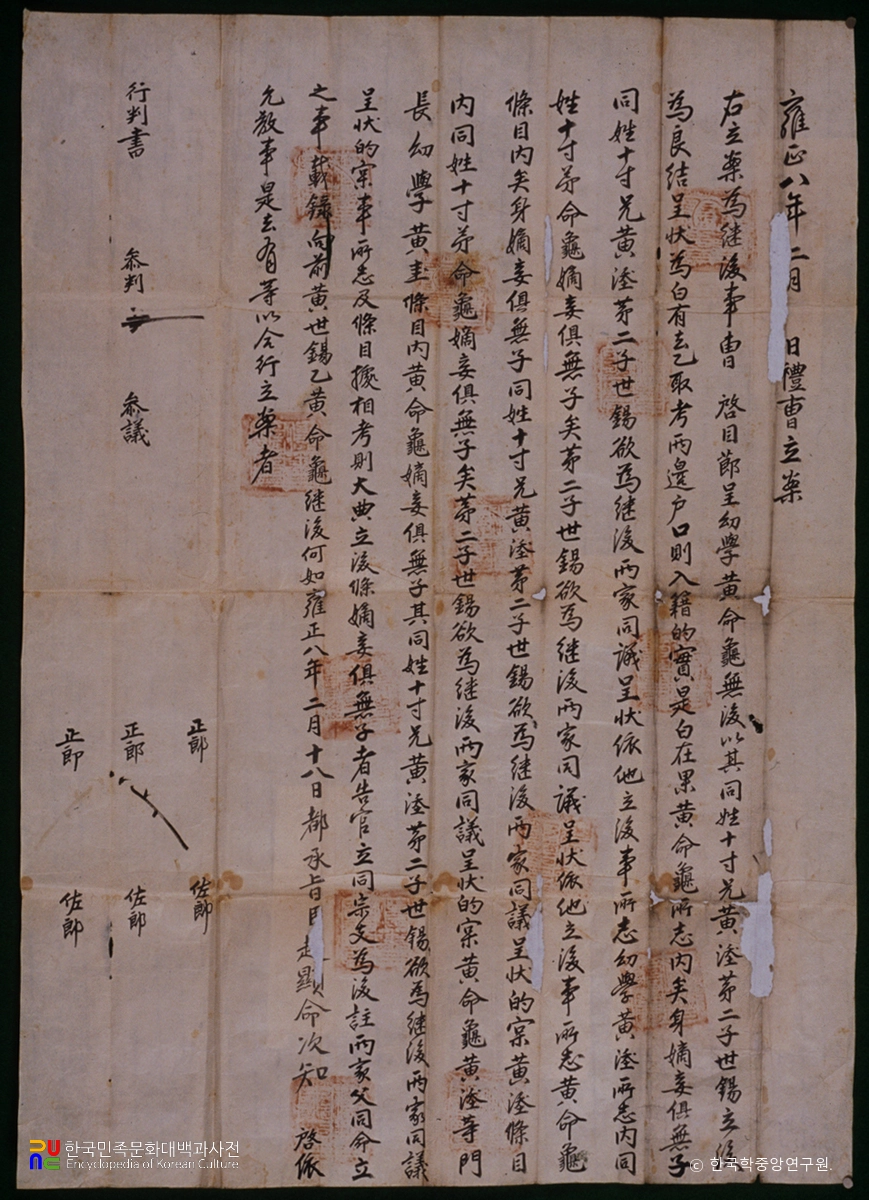 雍正八年二月 日禮曹立案
右立案爲継後事曺 啓目節呈幼學黃命龜無後以其同姓十寸兄黃 茅二子世錫立後
爲良結呈狀爲白有去乙取考兩邊戶口則入籍的實是白在果黃命龜所志內矣身嫡妾俱無子
同姓十寸兄黃 茅二子世錫欲爲継後兩家同議呈狀依他立後事所志幼學黃 所志內同
姓十寸茅命龜嫡妾俱無子矣茅二子世錫欲爲継後兩家同議呈狀依他立後事所志黃命龜
條目內矣身嫡妾俱無子同姓十寸兄黃 茅二子世錫欲爲継後兩家同議呈狀的宲黃 條目
內同姓十寸茅命龜嫡妾俱無子矣茅二子世錫欲爲継後兩家同議呈狀的宲黃命龜黃 等門
長幼學黃 條目內黃命龜嫡妾俱無子其同姓十寸兄黃 茅二子世錫欲爲継後兩家同議
呈狀的宲事所志及條目據相考則大典立後條嫡妾俱無子者告官立同宗支爲後註兩家父同命立
之事載錄向前黃世錫乙黃命龜継後何如雍正八年二月十八日都承旨臣趙顯命次知 啓依
允敎事是去有等以合行立案者
行判書 叅判 叅議
正郎 佐郎
正郎 佐郎
正郎 佐郎
한국민족문화대백과사전
Encyclopedia of Korean Culture
© 한국학중앙연구원.